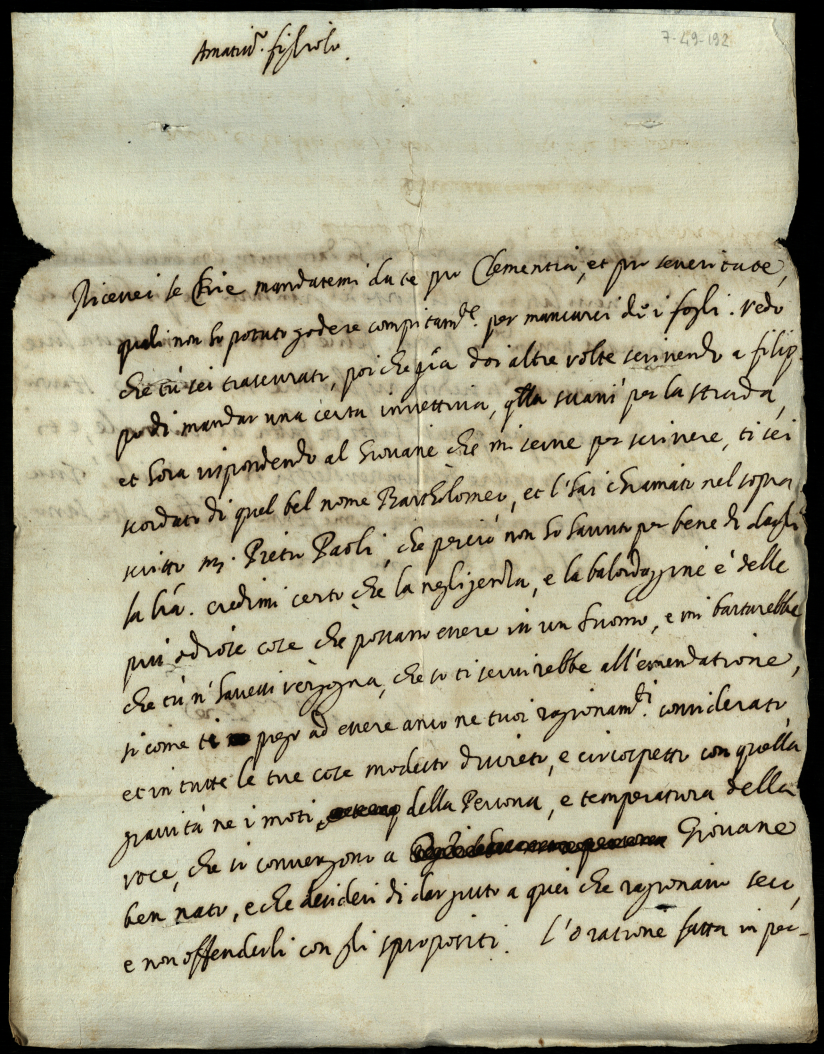 Amatiss.º figliolo.
7-49-192
Ricevei le Chrie mandatemi da te pro Clementia, et pro severitate,
quali non ho potuto godere compitam.te per mancarci doi fogli. Vedo
che tù sei trascurato, poi che già doi altre volte scrivendo a filip
po di mandar una certa invettiva, q̃lla svanì per la strada,
et hora rispondendo al Giovane che mi serve per scrivere, ti sei
scordato di quel bel nome Bartholomeo, et l'hai chiamato nel sopra
scritto m.r Pietro Paoli, che perciò non ho havuto per bene di dargli
la lr̃a. credimi certo che la negligenza, e la balordaggine è delle
più odiose cose che possano essere in un huomo, e mi bastarebbe
che tù n'havessi vergogna, che io ti servirebbe all'emendatione,
si come ti prego ad essere anco ne tuoi ragionam.ti considerato,
et in tutte le tue cose modesto discreto, e circospetto con quella
gravità ne i moti, della Persona, e temperatura della
voce, che si convengono a Giovane
ben nato, e che desideri di dar gusto a quei che ragionano seco,
e non offenderli con gli spropositi. L'oratione fatta in per-